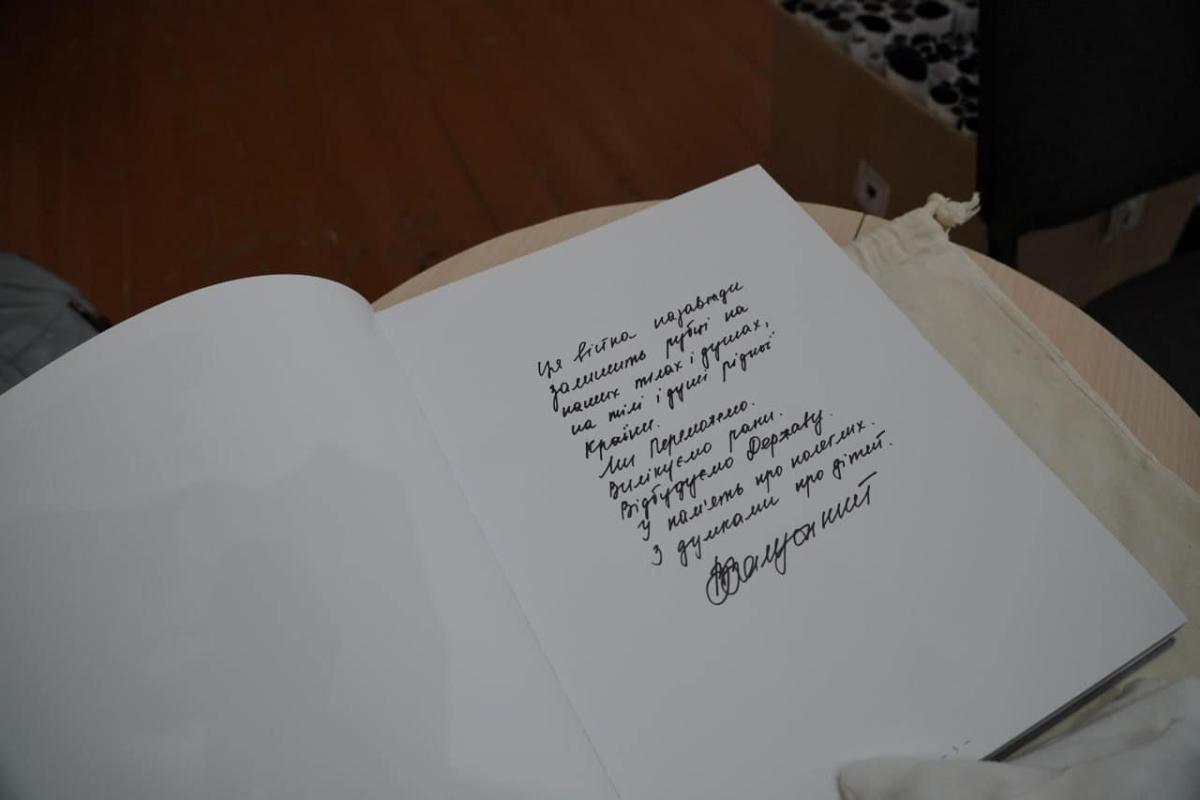 Ця війна назавжди
залишить рубці на
наших тілах і душах,
на тілі і душі рідної
країни.
Ми Переможемо.
Вилікуємо рани.
Відбудуємо Державу.
У пам'ять про полеглих.
З думками про дітей.
ВЗалужний